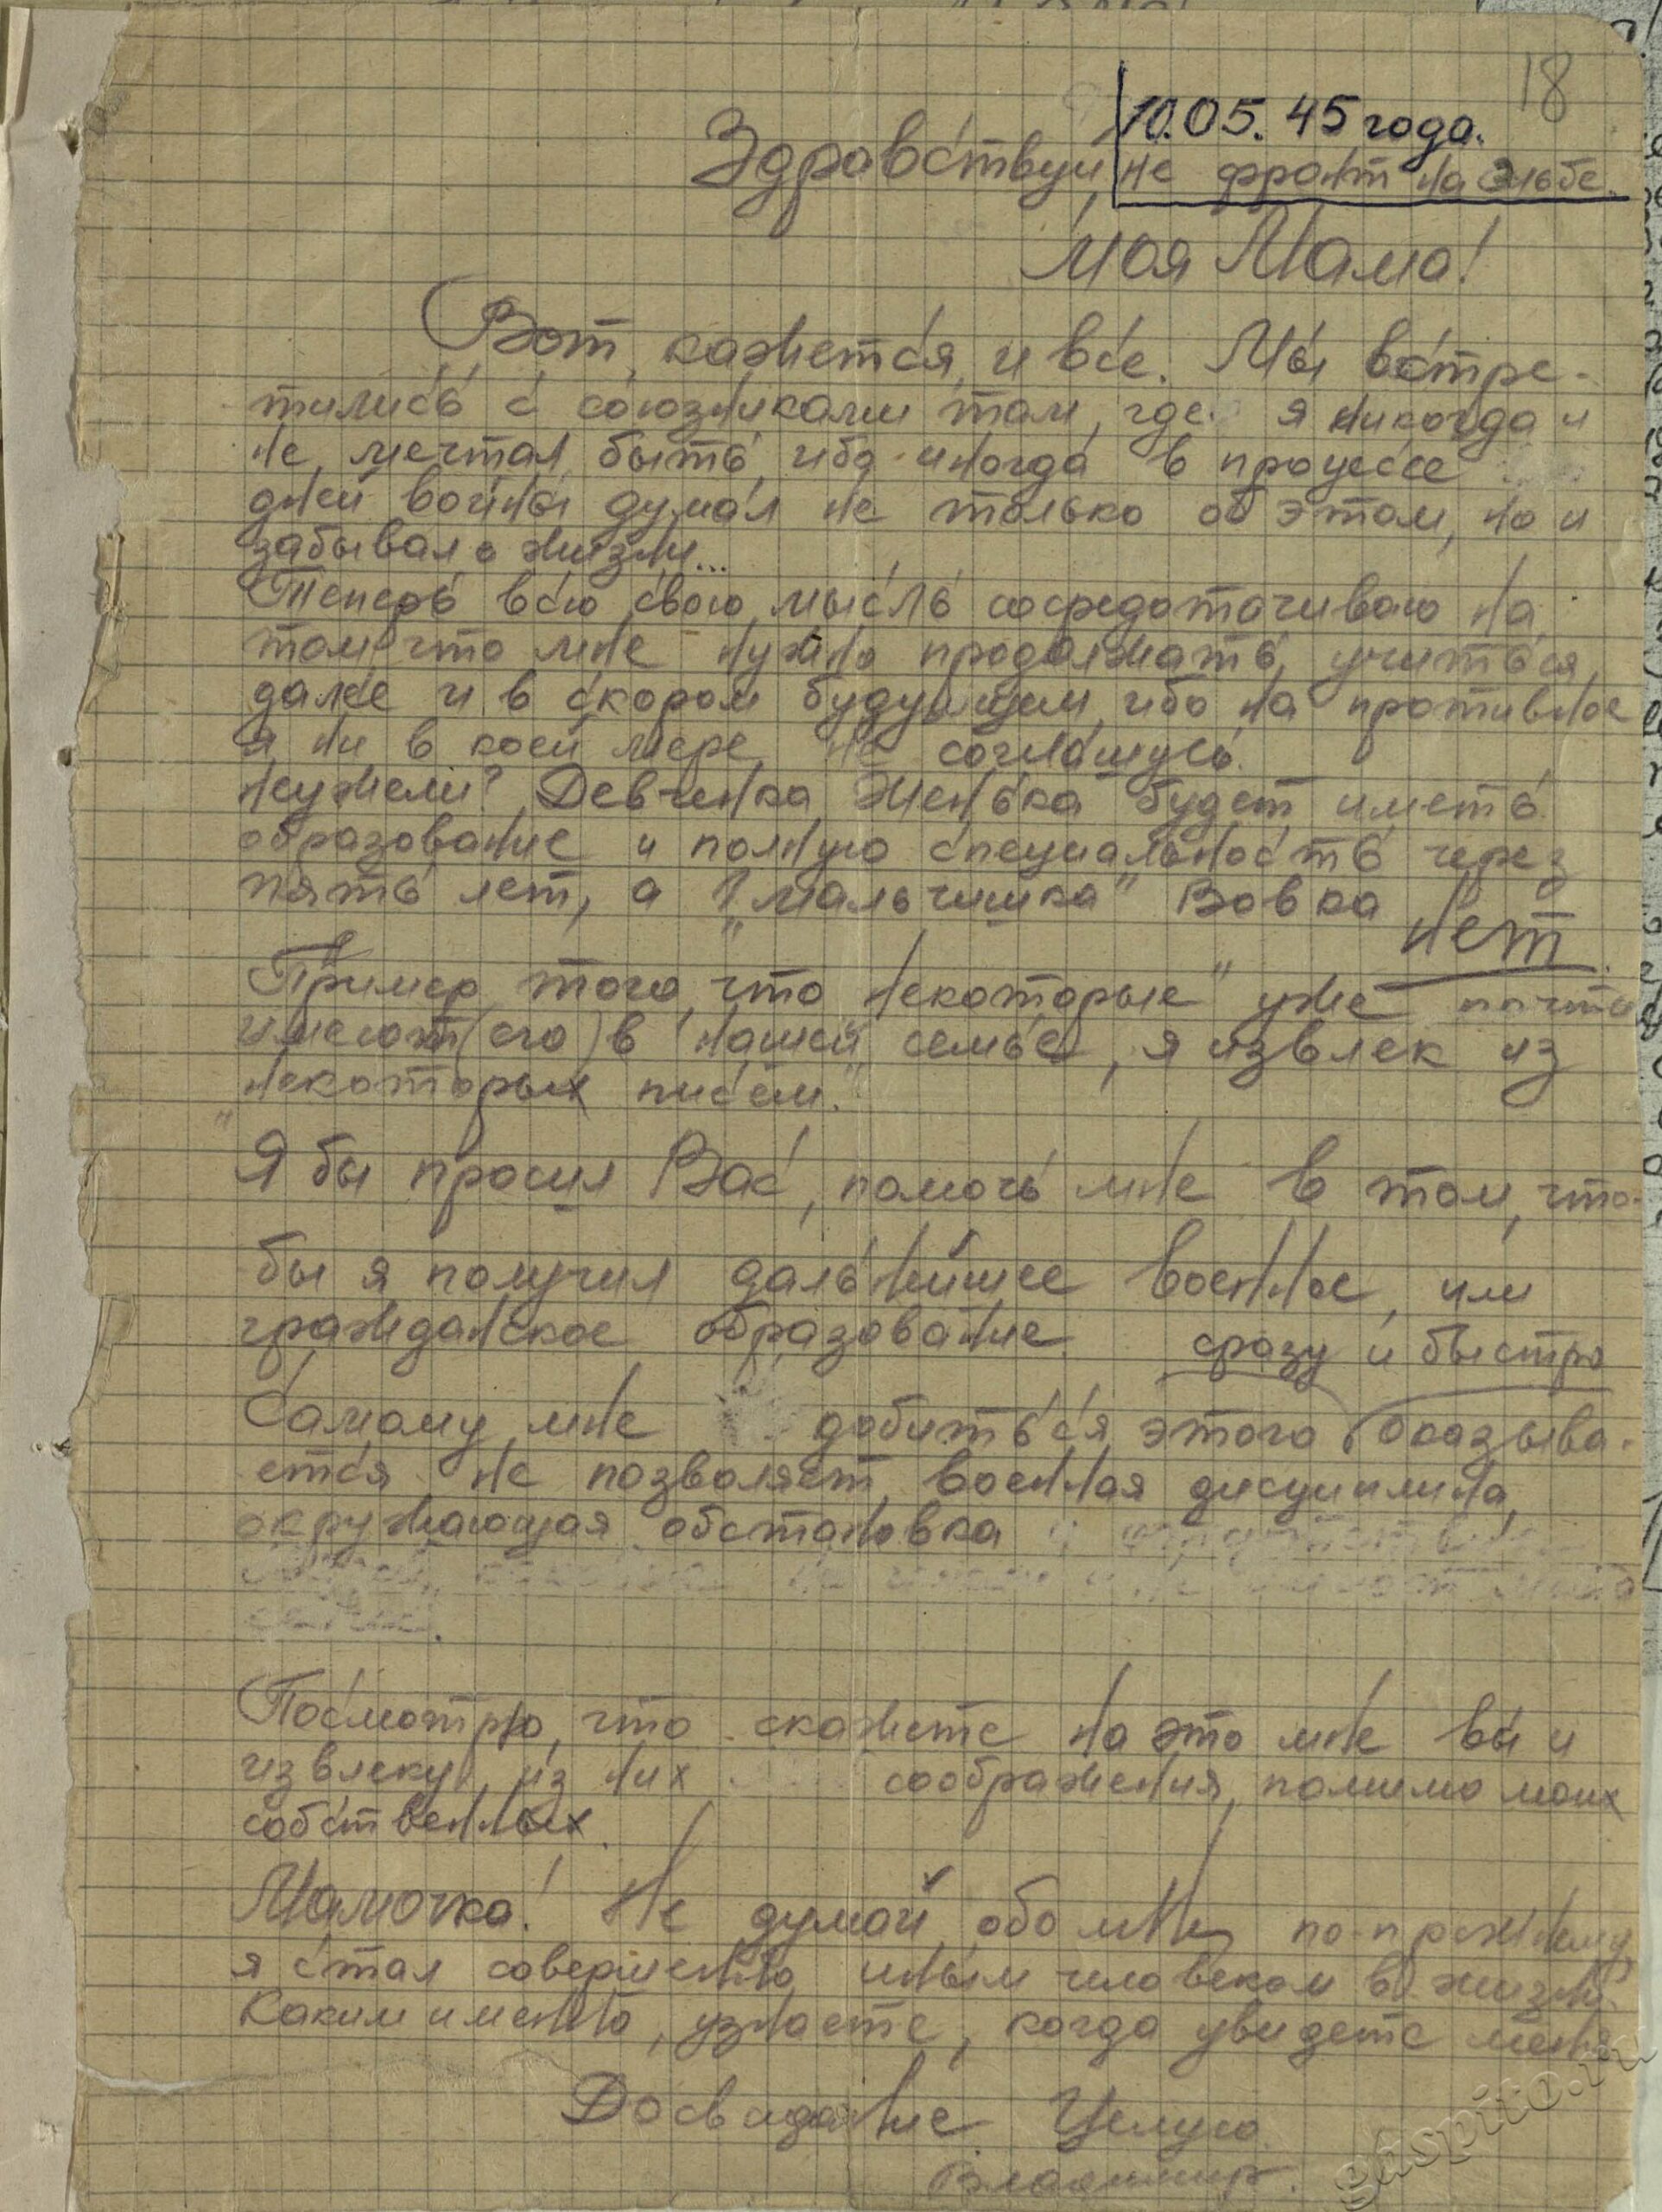 18
10.05.45 года.
не фронт на Эльбе.
Здравствуй,
моя Мама!
Вот, кажется, и все. Мы встре-
тились с союзниками там, где я никогда и
не мечтал быть, ибо иногда в процессе
дней войны думал не только об этом, но и
забывал о жизни...
Теперь всю свою мысль сосредотачиваю на
том, что мне нужно продолжать учиться
далее и в скором будущем, ибо на противное
я ни в коей мере не соглашусь.
Неужели? Девченка Женька будет иметь
образование и полную специальность через
пять лет, а "мальчишка" Вовка
нет.
Пример того, что некоторые" уже почти
имеют (его) в нашей семье, я извлек из
"некоторых писем."
Я бы просил Вас, помочь мне в том, что-
бы я получил дальнейшее военное, или
гражданское образование.
сразу и быстро
Самому мне добиться этого оказыва-
ется не позволяет военная дисциплина,
окружающая обстановка
Посмотрю, что скажете на это мне вы и
извлеку из них соображения, помимо моих
собственных.
Мамочка! Не думай обо мне по-прежнему,
я стал совершенно иным человеком в жизни.
Каким именно, узнаете, когда увидете меня
Досвидание. Целую.
Владимир.
gaspito.ru